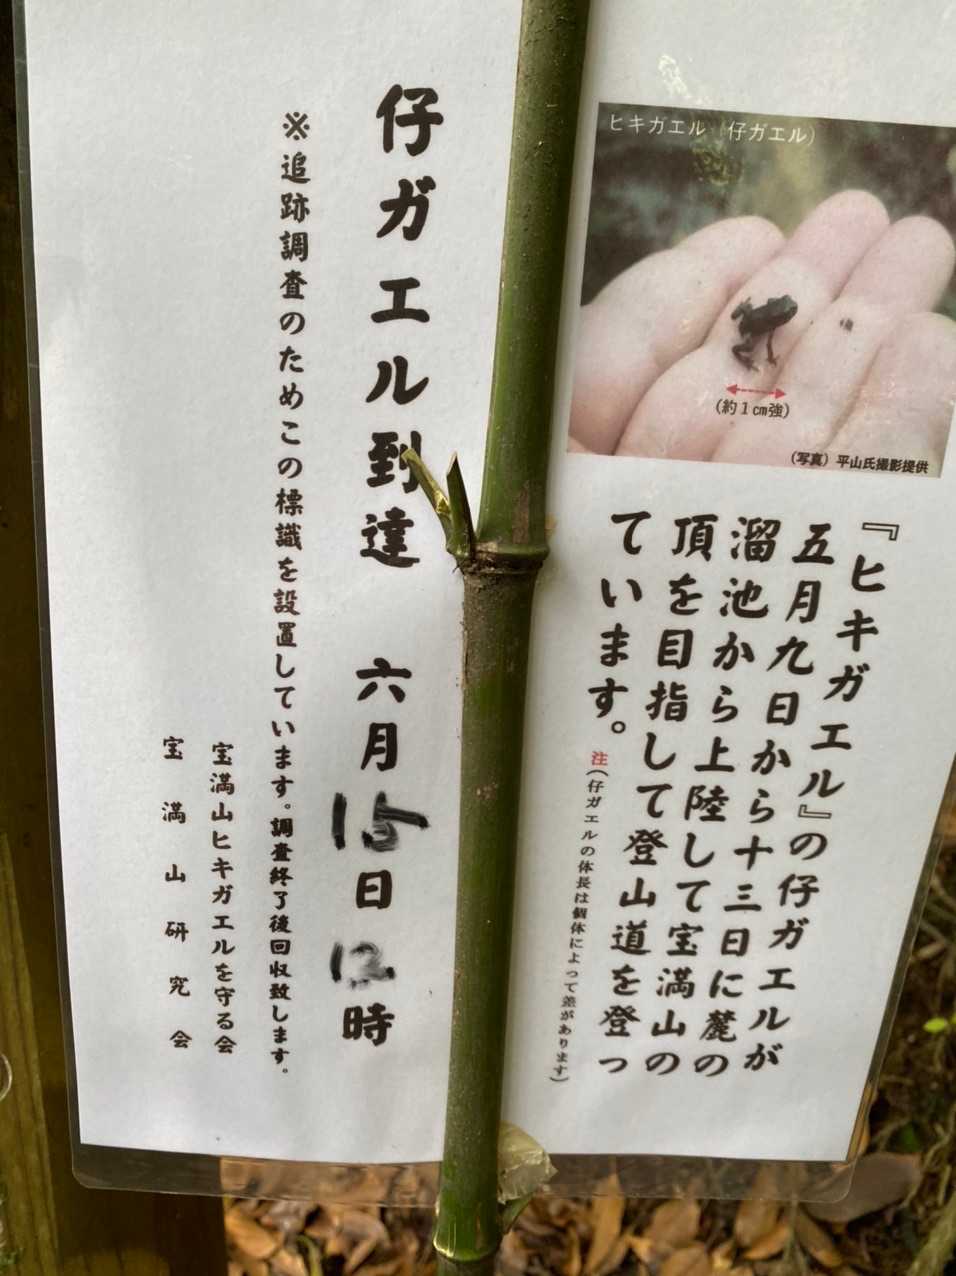 ヒキガエル(仔ガエル)
(約1cm強)
(写真)平山氏撮影提供
『ヒキガエル』の仔ガエルが
五月九日から十三日に麓の
溜池から上陸して宝満山の
頂を目指して登山道を登っ
ています。
注(仔ガエルの体長は個体によって差があります)
仔ガエル到達 六月15日12時
※追跡調査のためこの標識を設置しています。調査終了後回収致します。
宝満山ヒキガエルを守る会
宝満山研究会